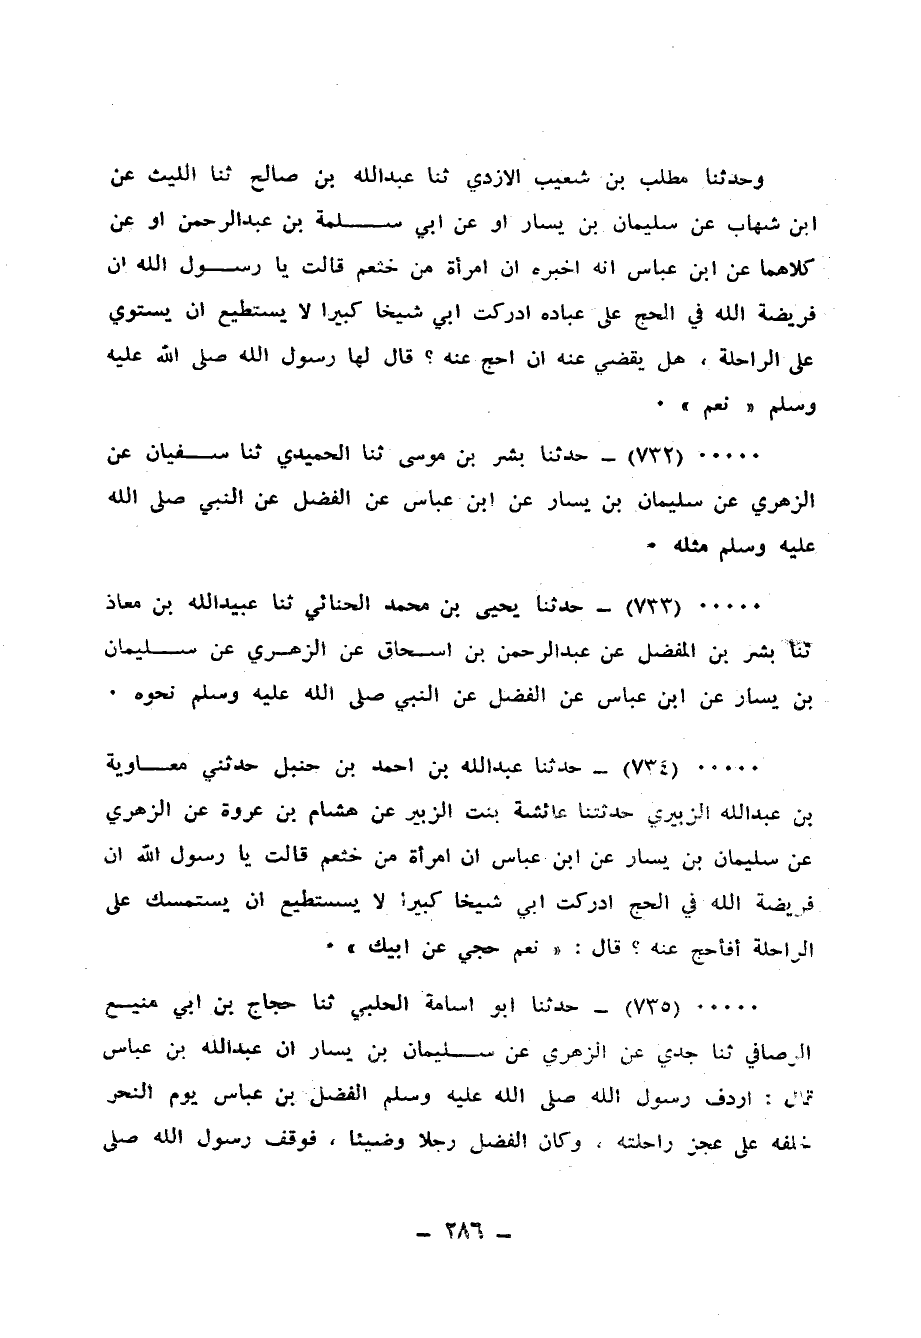 وحدثنا مطلب بن شعيب الازدي ثنا عبدالله بن صالح ثنا الليث عن
ابن شهاب عن سليمان بن يسار او عن ابي ســـلمة بن عبدالرحمن او عن
كلاهما عن ابن عباس انه اخبره ان امرأة من خثعم قالت يا رســـول الله ان
فريضة الله في الحج على عباده ادركت ابي شيخا كبيرا لا يستطيع ان يستوي
على الراحلة ، هل يقضي عنه ان احج عنه ؟ قال لها رسول الله صلى الله عليه
وسلم « نعم » ٠
٠٠٠٠٠ (٧٣٢) ـ حدثنا بشر بن موسى ثنا الحميدي ثنا ســـفيان عن
الزهري عن سليمان بن يسار عن ابن عباس عن الفضل عن النبي صلى الله
عليه وسلم مثله ٠
٠٠٠٠٠ (٧٣٣) ـ حدثنا يحيى بن محمد الحنائي ثنا عبيدالله بن معاذ
ثنا بشر بن المفضل عن عبدالرحمن بن اســحاق عن الزهــري عن ســـليمان
بن يسار عن ابن عباس عن الفضل عن النبي صلى الله عليه وسلم نحوه ٠
٠٠٠٠٠ (٧٣٤) ـ حدثنا عبدالله بن احمد بن حنبل حدثني معـــاوية
بن عبدالله الزبيري حدثتنا عائشة بنت الزبير عن هشام بن عروة عن الزهري
عن سليمان بن يسار عن ابن عباس ان امرأة من خثعم قالت يا رسول الله ان
فريضة الله في الحج ادركت ابي شيخا كبيرا لا يســتطيع ان يستمسك على
الراحلة أفأحج عنه ؟ قال : « نعم حجي عن ابيك » ٠
٠٠٠٠٠ (٧٣٥) ـ حدثنا ابو اسامة الحلبي ثنا حجاج بن ابي منيــع
الرصافي ثنا جدي عن الزهري عن ســـليمان بن يسار ان عبدالله بن عباس
قال : اردف رسول الله صلى الله عليه وسلم الفضل بن عباس يوم النحر
خلفه على عجز راحلته ، وكان الفضل رجلا وضيئا ، فوقف رسول الله صلى
ـ ٢٨٦ ـ